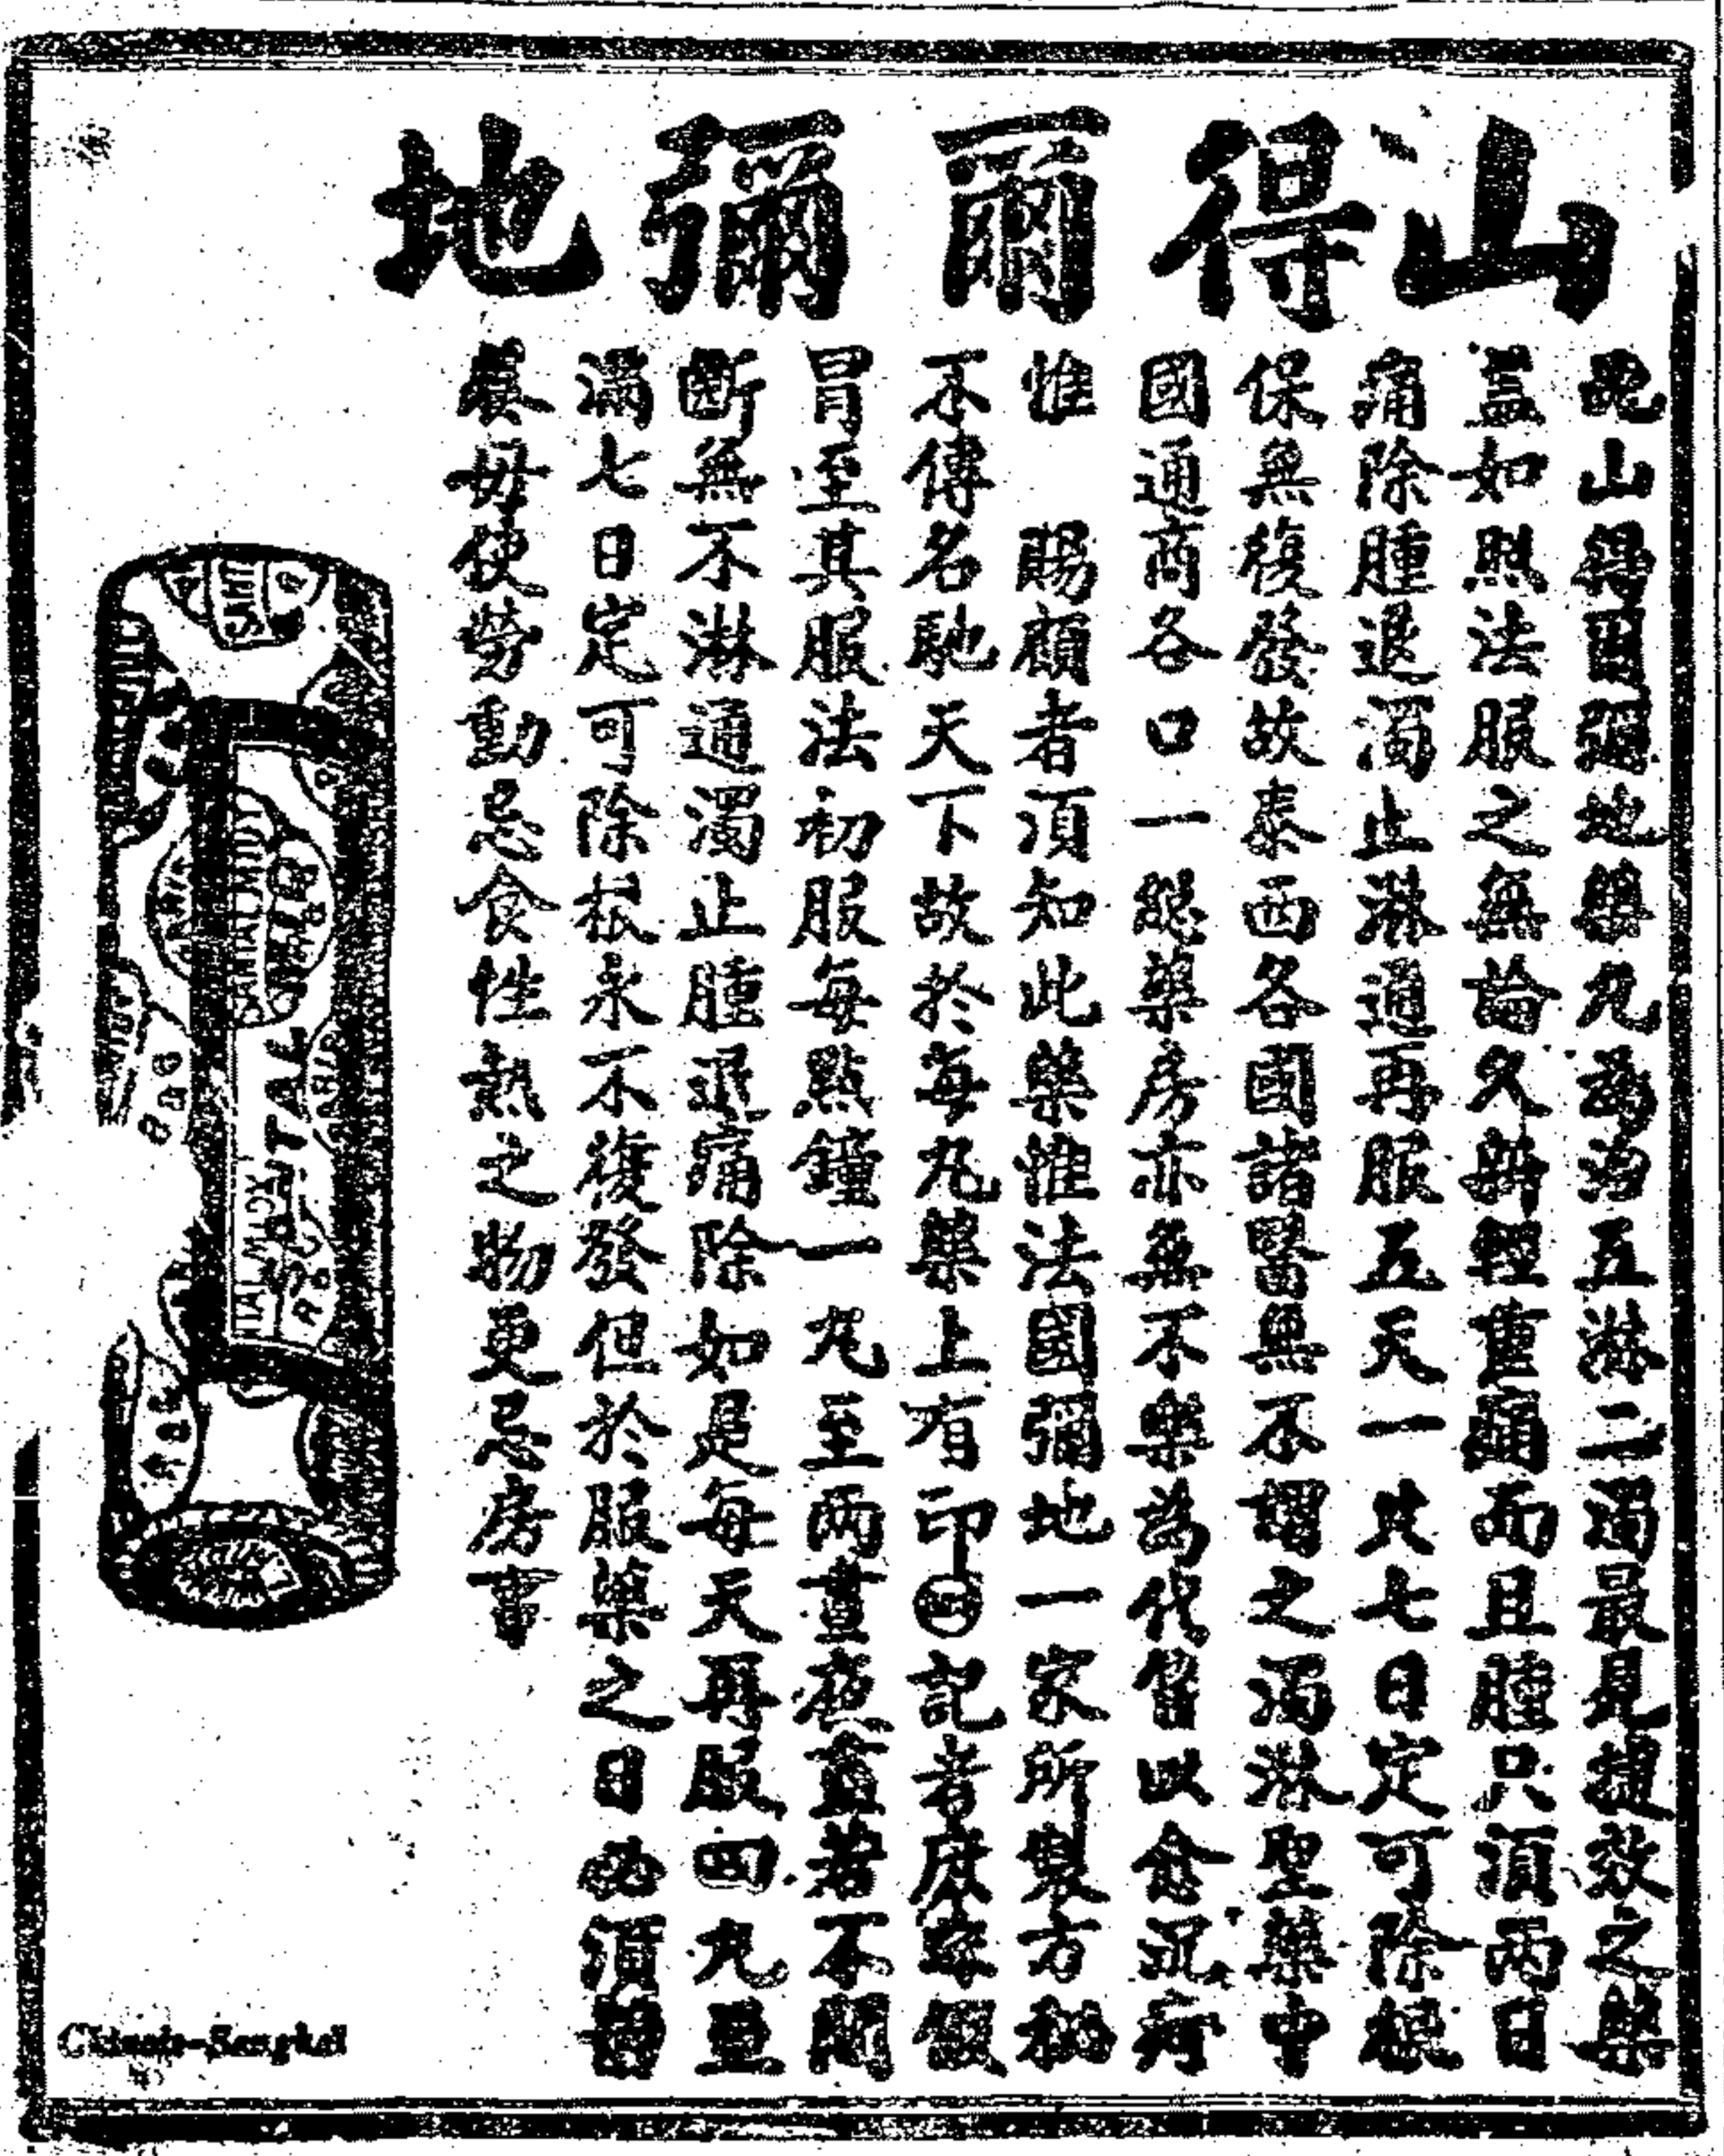 山得爾彌地
此山得爾彌地藥丸為治五淋二濁最見捷效之藥
蓋如照法服之無論久新輕重痛而且腫只須兩日
痛除腫退濁止淋通再服五天一共七日定可除根
保無復發故泰西各國諸醫無不謂之濁淋聖藥中
國通商各口一總藥房亦無不樂為代售以愈沉疴
惟 賜顧者須知此藥惟法國彌地一家所製方秘
不傳名馳天下故於每丸藥上有印記者庶辟假
冒至其服法初服每點鐘一丸至兩晝夜蓋若不間
斷無不淋通濁止腫退痛除如是每天再服四丸並
滿七日定可除根永不復發但於服藥之日必須靜
養毋使勞動忌食性熱之物更忌房事
SANTAL MIDY
SANTAL
PARIS